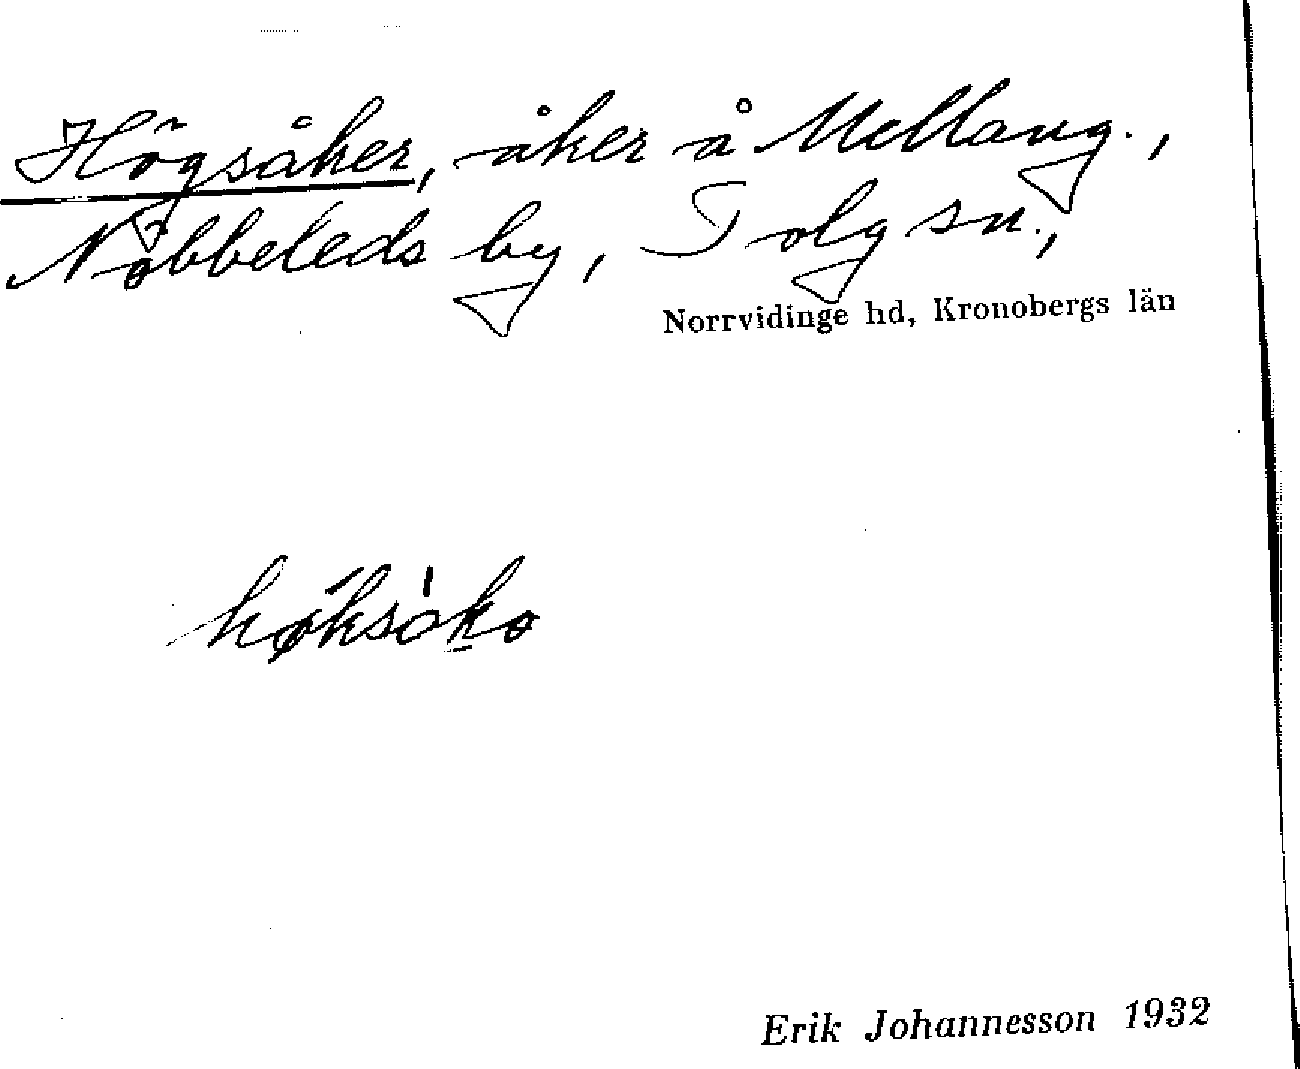 Högsåker, åker å Mellang.,
Nöbbeleds by, Tolg sn.,
Norrvidinge hd, Kronobergs län
Erik Johannesson 1932